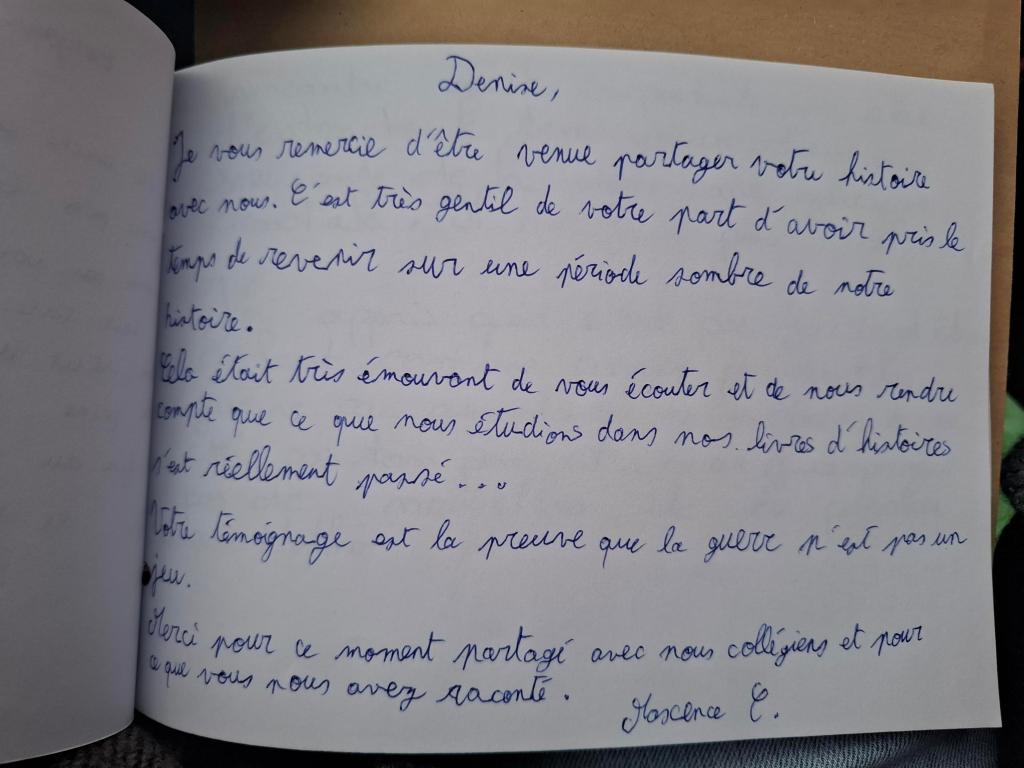 Denise,
Je vous remercie d'être venue partager votre histoire
avec nous. C'est très gentil de votre part d'avoir pris le
temps de revenir sur une période sombre de notre
histoire.
Cela était très émouvant de vous écouter et de nous rendre
compte que ce que nous étudions dans nos livres d'histoires
s'est réellement passé...
Votre témoignage est la preuve que la guerre n'est pas un
jeu.
Merci pour ce moment partagé avec nous collégiens et pour
ce que vous nous avez raconté.
Maxence C.